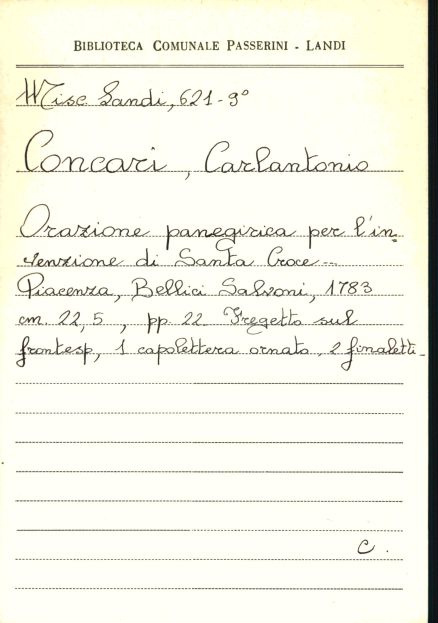 BIBLIOTECA COMUNALE PASSERINI - LANDI
Misc. Landi, 621-9°
Concari, Carlantonio
Orazione panegirica per l'in-
venzione di Santa Croce...
Piacenza, Bellici Salvoni, 1783
cm. 22,5, pp. 22 Fregetto sul
frontesp, 1 capolettera ornato, 2 finaletti-
C.